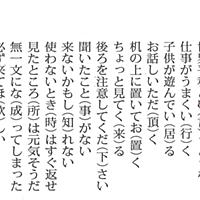 仕事がうまくい(行)く
子供が遊んでい(居)る
お話しいただ(頂)く
机の上に置いてお(置)く
ちょっと見てく(来)る
後ろを注意してくだ(下)さい
聞いたこと(事)がない
来ないかもし(知)れない
使わないとき(時)はすぐ返せ
見たところ(所)は元気そうだ
無一文にな(成)ってしまった
必ず来てほ(欲)しい